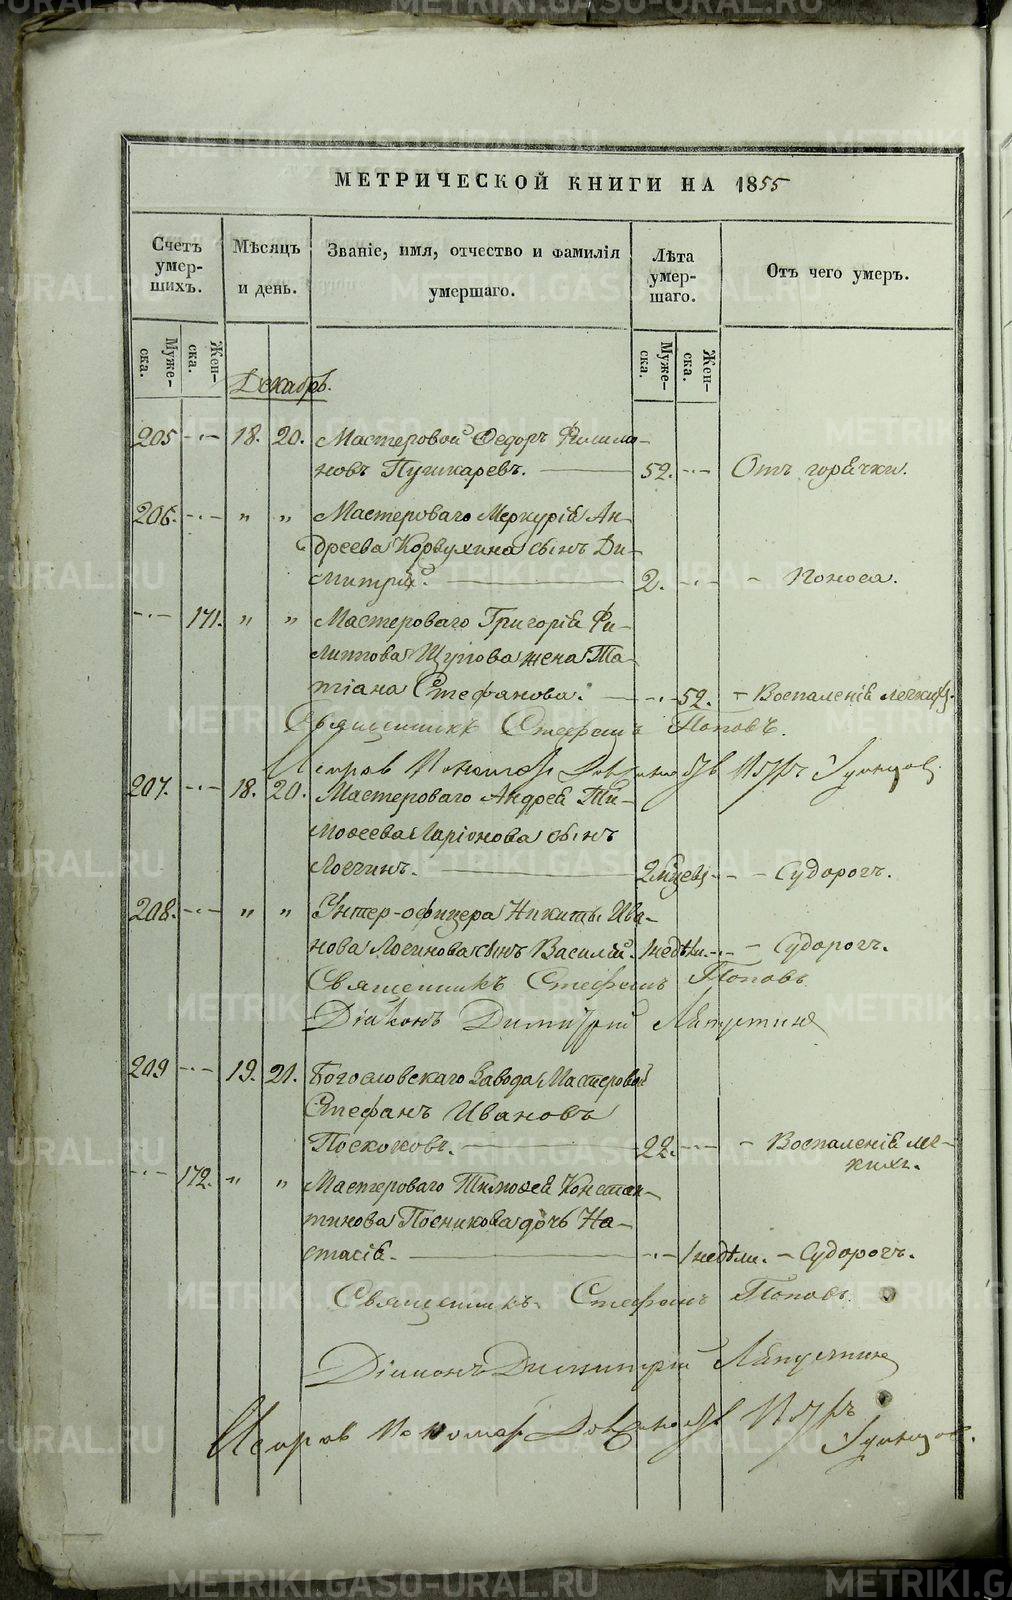 МЕТРИЧЕСКОЙ КНИГИ НА 1855
Счетъ умер-шихъ. Мѣсяцъ и день. Званіе, имя, отчество и фамилія умершаго. Лѣта умер-шаго. Отъ чего умеръ.
Муже-ска. Жен-ска. Муже-ска. Жен-ска.
Декабрь.
205 -·- 18. 20. Мастеровой Ѳедоръ Филимо-
новъ Пушкаревъ. 52. -·- Отъ горячки.
206. -·- " " Мастероваго Меркурія Ан-
дреева Корвухина сынъ Ди-
митрій. 2. -·- - Поноса.
-·- 171. " " Мастероваго Григорія Фи-
липпова Щупова жена Та-
тіана Стефанова. -·- 52. - Воспаленія легкихъ.
Священникъ Стефанъ Поповъ.
207. -·- 18. 20. Мастероваго Андрея Ти-
моѳеева Ларіонова сынъ
Логгинъ. 2 мѣсяц. -·- - Судорогъ.
208. -·- " " Унтер-офицера Никиты Ива-
нова Логинова сынъ Василій. 1 недѣли. -·- - Судорогъ.
Священникъ Стефанъ Поповъ
Діаконъ Димитрій Ляпустинъ
209 -·- 19. 21. Богословскаго Завода Мастеровой
Стефанъ Ивановъ
Поскоковъ. 22. -·- - Воспаленія ле-
кихъ.
-·- 172. " " Мастероваго Тимоѳея Констан-
тинова Посникова дочь На-
стасія. -·- 1 недѣли. - Судорогъ.
Священникъ Стефанъ Поповъ.
Діаконъ Димитрій Ляпустинъ
METRIKI.GASO-URAL.RU